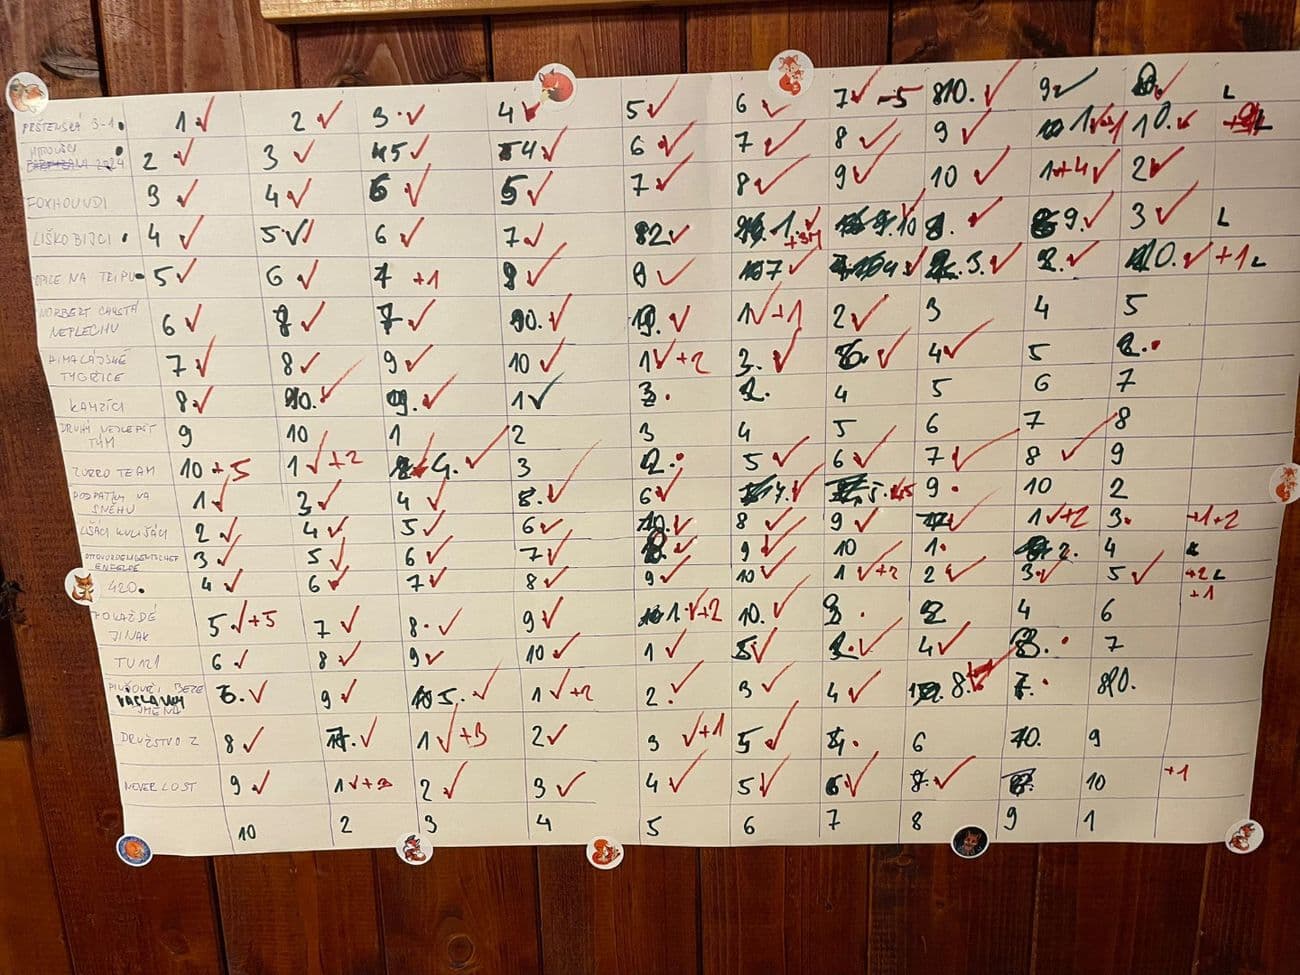 1 ✓ 2 ✓ 3 ✓ 4 ✓ 5 ✓ 6 ✓ 7 ✓ -5 810. ✓ 9 ✓ L
PRŠTENSKÁ 3-1
2 ✓ 3 ✓ 5 ✓ 4 ✓ 6 ✓ 7 ✓ 8 ✓ 9 ✓ 1 ✓ +1 10. ✓ L
2024
FOXHOUNDI 3 ✓ 4 ✓ 6 ✓ 5 ✓ 7 ✓ 8 ✓ 9 ✓ 10 ✓ 1 +4 ✓ 2 ✓
LIŠKOBIJCI 4 ✓ 5 ✓ 6 ✓ 7 ✓ 82 ✓ 1. ✓ +3M 10 8. ✓ 9. ✓ 3 ✓ L
OPICE NA TRIPU 5 ✓ 6 ✓ 7 +1 8 ✓ 9 ✓ 7 ✓ 4 ✓ 3. ✓ 2. ✓ 10. ✓ +1 L
NORBERT CHYSTÁ
NEPLECHU 6 ✓ 8 ✓ 7 ✓ 10. ✓ 9. ✓ 1 ✓ +1 2 ✓ 3 4 5
HIMALÁJSKÉ
TYGŘICE 7 ✓ 8 ✓ 9 ✓ 10 ✓ 1 ✓ +2 3. ✓ 6. ✓ 4 ✓ 5 2.
KAMZÍCI 8 ✓ 10. ✓ 9. ✓ 1 ✓ 3. 2. 4 5 6 7
DRUHÝ NEJLEPŠÍ
TÝM 9 10 1 2 3 4 5 6 7 8
ZORRO TEAM 10 +5 1 ✓ +2 4. ✓ 3 2. 5 ✓ 6 ✓ 7 ✓ 8 ✓ 9
PODPATKY NA
SNĚHU 1 ✓ 3 ✓ 4 ✓ 8. ✓ 6 ✓ 7. ✓ 5. 9 . 10 2
LIŠÁCI KULIŠÁCI 2 ✓ 4 ✓ 5 ✓ 6 ✓ 10. ✓ 8 ✓ 9 ✓ 7 ✓ 1 ✓ +2 3. +1+2
3 ✓ 5 ✓ 6 ✓ 7 ✓ 8. ✓ 9 ✓ 10 1. 2. 4
420. 4 ✓ 6 ✓ 7 ✓ 8 ✓ 9 ✓ 10 ✓ 1 ✓ +2 2 ✓ 3 ✓ 5 ✓ +2 L
+1
POKAŽDÉ
JINAK 5 ✓ +5 7 ✓ 8. ✓ 9 ✓ 1. ✓ +2 10. ✓ 3 . 2 4 6
TUNZI 6 ✓ 8 ✓ 9 ✓ 10 ✓ 1 ✓ 5 ✓ 2. ✓ 4 ✓ 3. 7
BEZE
JMÉNA 6. ✓ 9 ✓ 5. ✓ 1 ✓ +2 2. ✓ 3 ✓ 4 ✓ 8. ✓ 7. 810.
DRUŽSTVO Z 8 ✓ 7. ✓ 1 ✓ +3 2 ✓ 3 ✓ +1 5 ✓ 4. 6 10. 9
NEVER LOST 9 ✓ 1 ✓ +3 2 ✓ 3 ✓ 4 ✓ 5 ✓ 6 ✓ 7. ✓ 8. 10 +1
10 2 3 4 5 6 7 8 9 1